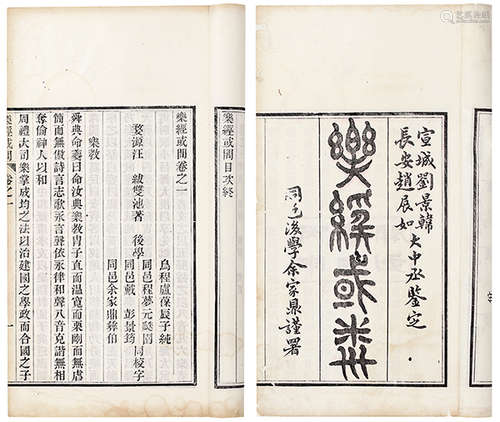 宣城劉景韓
長安趙展如
大中丞鑒定
樂經或問
同邑後學余家鼎謹署
樂經或問目次終
樂經或問卷之一
烏程盧葆辰子純
婺源汪 紱雙池著 後學 同邑程夢元 同校字
同邑戴 彭景筠
同邑余家鼎彝伯
樂教
舜典命夔曰命汝典樂教冑子直而溫寬而栗剛而無虐
簡而無傲詩言志歌永言聲依永律和聲八音克諧無相
奪倫神人以和
周禮大司樂掌成均之法以治建國之學政而合國之子
樂經或問 卷之一 一